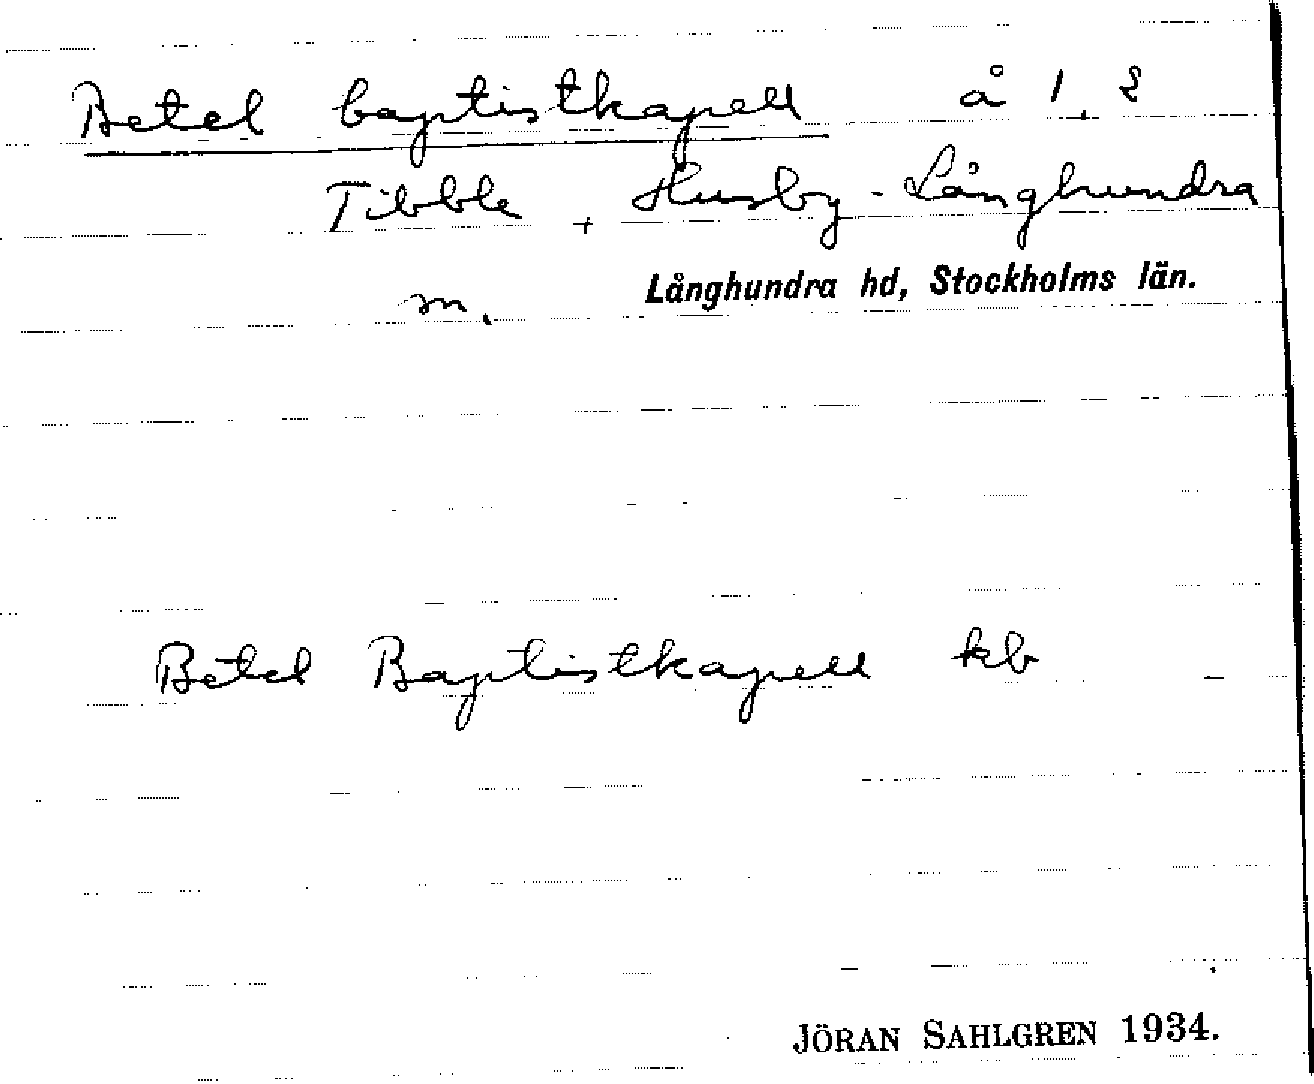 Betel baptistkapell å 1, 2
Tibble, Husby-Långhundra
m. Långhundra hd, Stockholms län.
Betel Baptistkapell kb
JÖRAN SAHLGREN 1934.